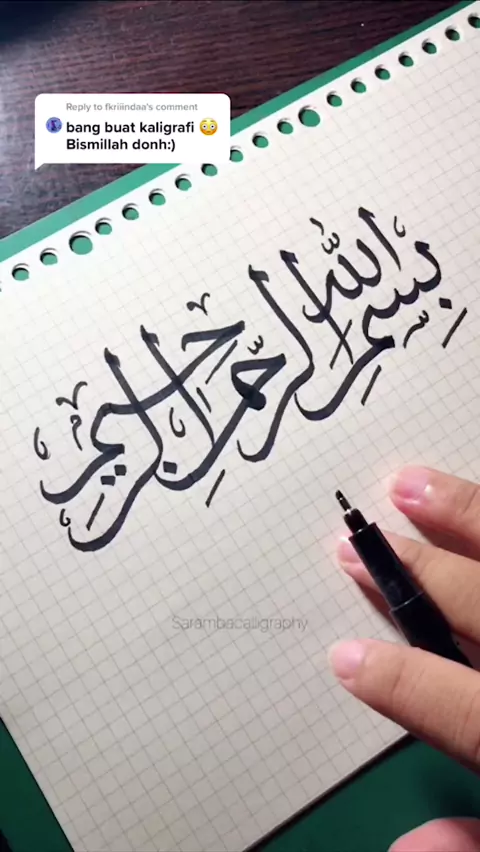 Reply to fkriiindaa's comment
bang buat kaligrafi 😳
Bismillah donh:)
بِسْمِ اللّٰهِ الرَّحْمٰنِ الرَّحِيمِ
Sarambacalligraphy